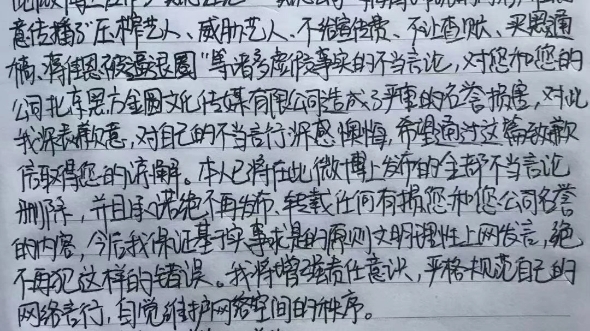 意传播了"压榨艺人、威胁艺人、不给宣传费、不让查账、买黑通
稿、蒋佳恩被逼退圈"等诸多虚假事实的不当言论,对您和您的
公司北京黑方金圆文化传媒有限公司造成了严重的名誉损害,对此
我深表歉意,对自己的不当言行深感懊悔,希望通过这篇致歉
信取得您的谅解。本人已将在此微博上发布的全部不当言论
删除,并且承诺绝不再发布、转载任何有损您和您公司名誉
的内容,今后我保证基于实事求是的原则文明理性上网发言,绝
不再犯这样的错误。我将增强责任意识,严格规范自己的
网络言行,自觉维护网络空间的秩序。